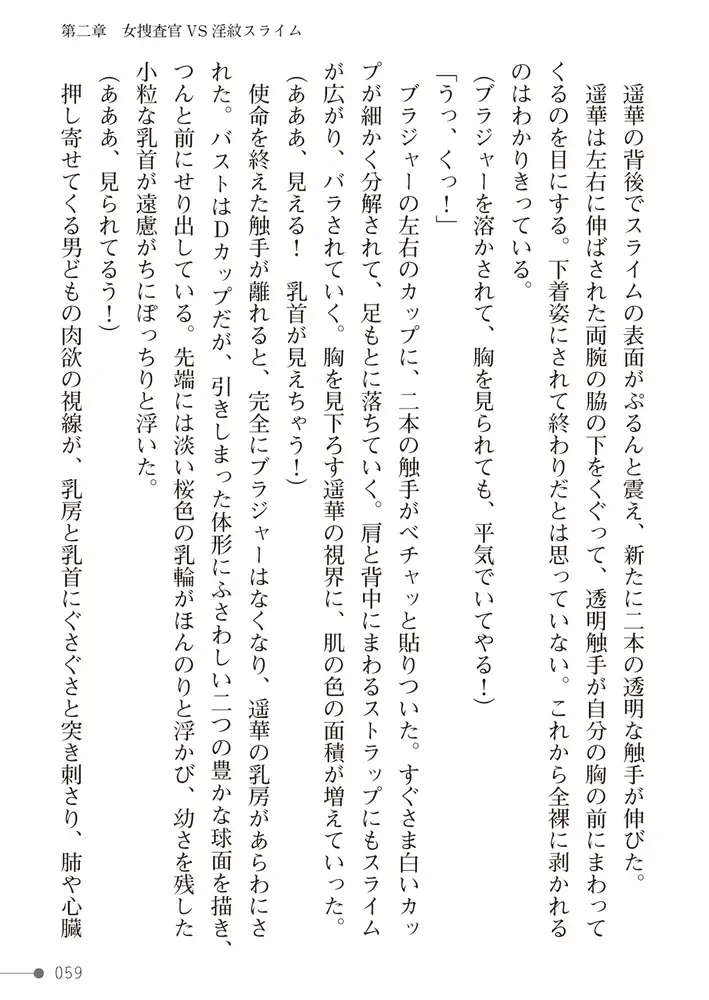 第二章　女捜査官VS淫紋スライム
　遥華の背後でスライムの表面がぷるんと震え、新たに二本の透明な触手が伸びた。
　遥華は左右に伸ばされた両腕の脇の下をくぐって、透明触手が自分の胸の前にまわって
くるのを目にする。下着姿にされて終わりだとは思っていない。これから全裸に剥かれる
のはわかりきっている。
（ブラジャーを溶かされて、胸を見られても、平気でいてやる！）
「うっ、くっ！」
　ブラジャーの左右のカップに、二本の触手がベチャッと貼りついた。すぐさま白いカッ
プが細かく分解されて、足もとに落ちていく。肩と背中にまわるストラップにもスライム
が広がり、バラされていく。胸を見下ろす遥華の視界に、肌の色の面積が増えていった。
（あああ、見える！　乳首が見えちゃう！）
　使命を終えた触手が離れると、完全にブラジャーはなくなり、遥華の乳房があらわにさ
れた。バストはDカップだが、引きしまった体形にふさわしい二つの豊かな球面を描き、
つんと前にせり出している。先端には淡い桜色の乳輪がほんのりと浮かび、幼さを残した
小粒な乳首が遠慮がちにぽっちりと浮いた。
（あああ、見られてるう！）
　押し寄せてくる男どもの肉欲の視線が、乳房と乳首にぐさぐさと突き刺さり、肺や心臓
059